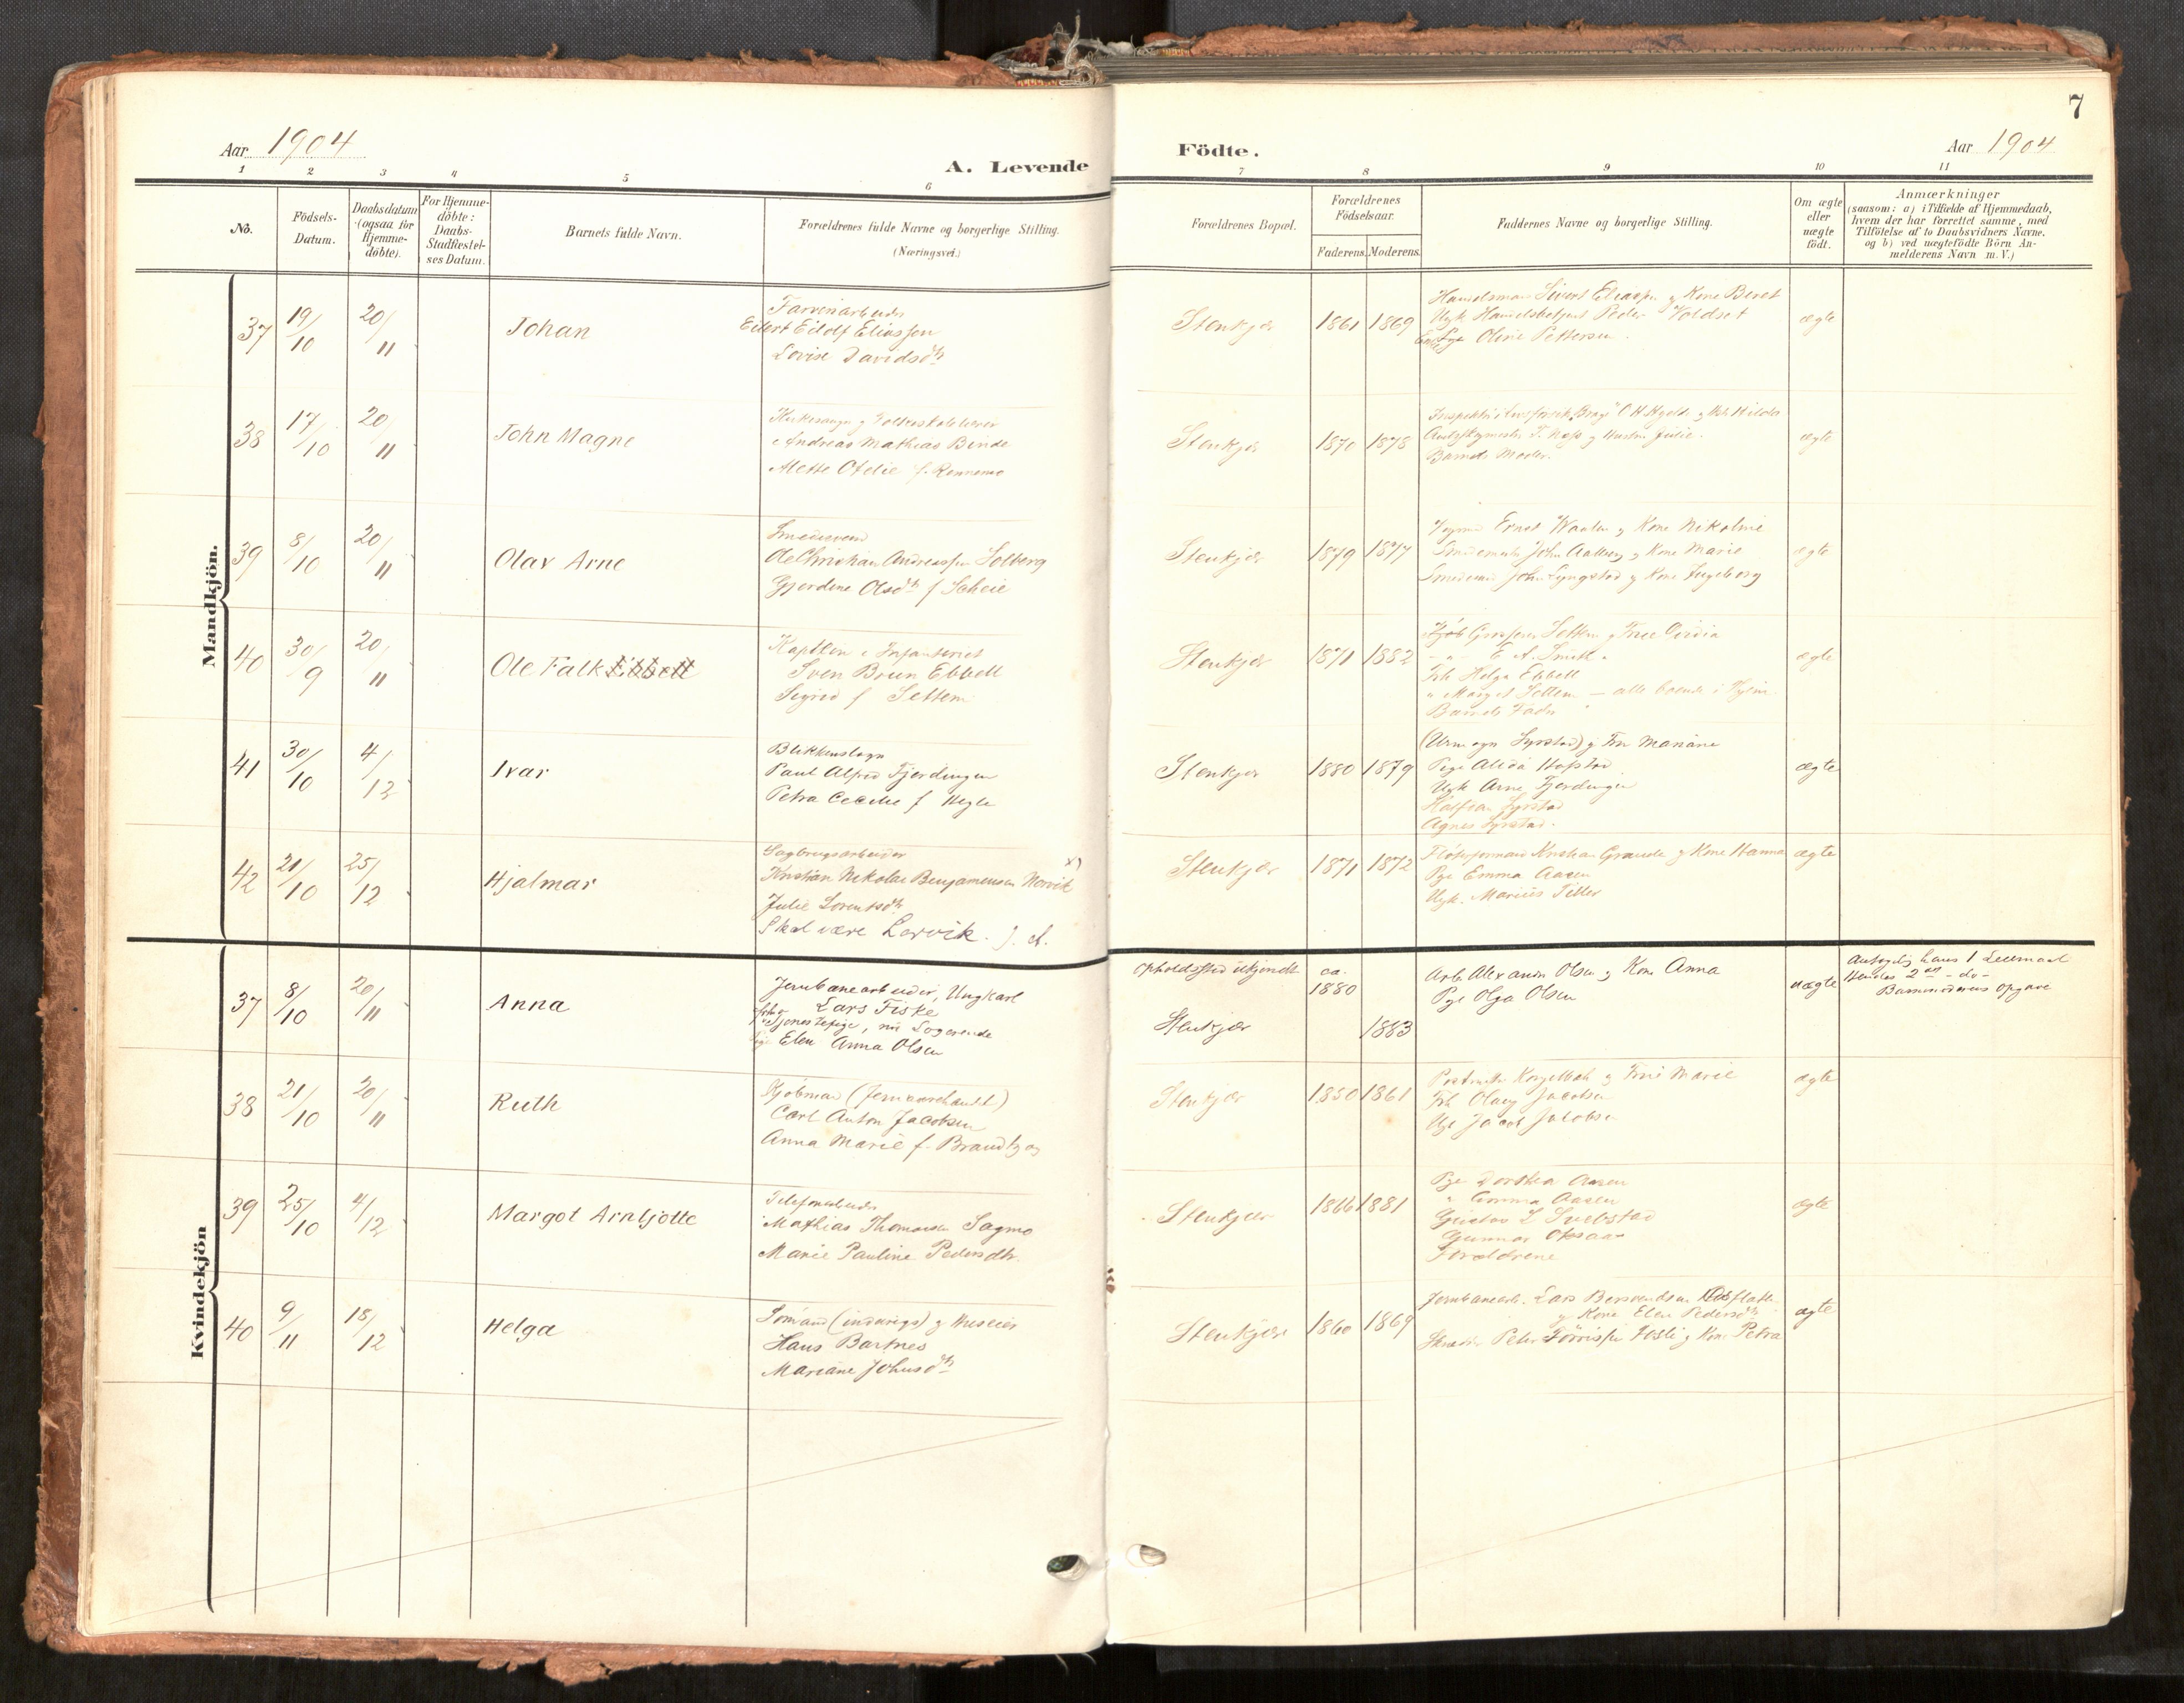 7
Aar 1904
A. Levende
Födte.
Aar 1904
1 2 3 4 5 6 7 8 9 10 11
No.
Födsels-
Datum.
Daabsdatum
(ogsaa for
Hjemme-
döbte).
For Hjemme-
döbte:
Daabs-
Stadfæstel-
ses Datum.
Barnets fulde Navn.
Forældrenes fulde Navne og borgerlige Stilling.
(Næringsvei.)
Forældrenes Bopæl.
Forældrenes
Födselsaar.
Faderens. Moderens.
Faddernes Navne og borgerlige Stilling.
Om ægte
eller
uægte
født.
Anmærkninger
(saasom: a) i Tilfælde af Hjemmedaab,
hvem der har forrettet samme, med
Tilföielse af to Daabsvidners Navne.
og b) ved uægtefödte Börn An-
melderens Navn m. V.)
Mandkjön.
37 19/10 20/11
Johan
Eilert Eidolf Eliassen
Lovise Davidsdtr
Stenkjær
1861 1869
Handelsmand Sivert Eliassen og Kone Beret
Ugk. Handelsbetjent Peder Voldset
Pge Oline Pettersen.
ægte
38 17/10 20/11
John Magne
Kirkesanger og Folkeskolelærer
Andreas Mathias Binde
Mette Otelie f. Rennemo
Stenkjær
1870 1878
og Hustru Julie.
Barnets Moder.
ægte
39 8/10 20/11
Olav Arne
Smedesvend
Ole Christian Andreassen Solberg
Gjerdine Olsdtr f Scheie
Stenkjær
1879 1877
Ernst Waalen og Kone Nikoline
Smedemester John Aalberg og Kone Marie
Smedesvend John Lyngstad og Kone Ingeborg
ægte
40 30/9 20/11
Ole Falk Ebbell
Kaptein i Infanteriet
Sven Brun Ebbell
Sigrid f Settem
Stenkjær
1871 1882
Settem og Frue
E. A. Smith
Frk Helga Ebbell
" Margit Settem — alle boende i
Barnets Fader
ægte
41 30/10 4/12
Ivar
Blikkenslager
Paul Alfred Fjerdingen
Petra Cecilie f Hegle
Stenkjær
1880 1879
(Urmager Syrstad) og Fru Mariane
Pige Alida Hofstad
Ugk Arne Fjerdingen
Halfdan Syrstad
Agnes Syrstad.
ægte
42 21/10 25/12
Hjalmar
Sagbrugsarbeider
Kristian Nikolai Benjaminsen Norvik x)
Julie Lorentsdtr
Skal være Lorvik. J. A.
Stenkjær
1871 1872
Fløterformand Kristian Grande og Kone Hanna
Pge Emma Aasen
Ugk. Marius Tiller
ægte
Kvindekjön
37 8/10 20/11
Anna
Jernbanearbeider, Ungkarl
Lars Fiske
Tjenestepige, nu Logerende
Elen Anna Olsen
Opholdssted ukjendt
Stenkjær
ca.
1880
1883
Arb. Alexander Olsen og Kone Anna
Pge Olga Olsen
uægte
Antagelig hans 1 Leiermaal
Hendes 2det - do -
Barnemoderens Opgave
38 21/10 20/11
Ruth
Kjøbmand
Carl Anton Jacobsen
Anna Marie f. Brandtzæg
Stenkjær
1850 1861
og Frue Marie
Frk Olaug Jacobsen
Ugk Jacob Jacobsen
ægte
39 25/10 4/12
Margot Arnljotte
Telefonarbeider
Mathias Thomassen Sagmo
Marie Pauline Pedersdtr.
Stenkjær
1866 1881
Pge Dorthea Aasen
" Emma Aasen
Gustav L Svebstad
Gunnar
Forældrene
ægte
40 9/11 18/12
Helga
Sömand (indenrigs) og Huseier
Hans Bartnes
Mariane Johnsdtr
Stenkjær
1860 1869
Jernbanearb. Lars
og Kone Elen Pedersdtr
Skræder Peter Tørrissen Fosli og Kone Petra
ægte